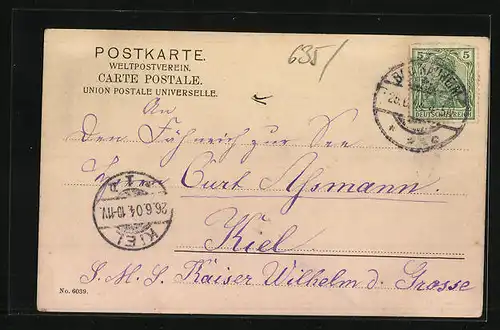 POSTKARTE.
WELTPOSTVEREIN.
CARTE POSTALE.
UNION POSTALE UNIVERSELLE.
635/
5 5
DEUTSCHES REICH
An
den Fähnrich zur See
Curt Assmann.
Kiel
S. M. S. Kaiser Wilhelm d. Grosse
26.6.04.10-11V.
KIEL
No. 6039.